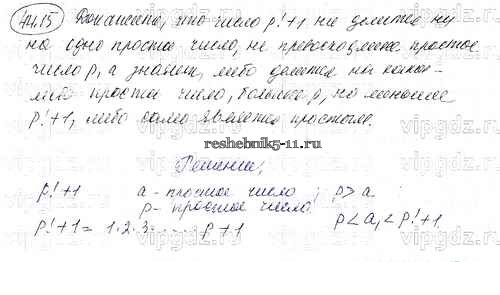 44.15 Докажите, что число p!+1 не делится ни
на одно простое число, не превосходящее простое
число p, а значит, либо делится на какое-
либо простое число, большее p, но меньшее
p!+1, либо само является простым.
reshebnik5-11.ru
Решение,
p!+1 a - простое число ; p > a.
p - простое число
p!+1 = 1·2·3· ..... p+1 p < a, < p!+1.
vipgdz.ru